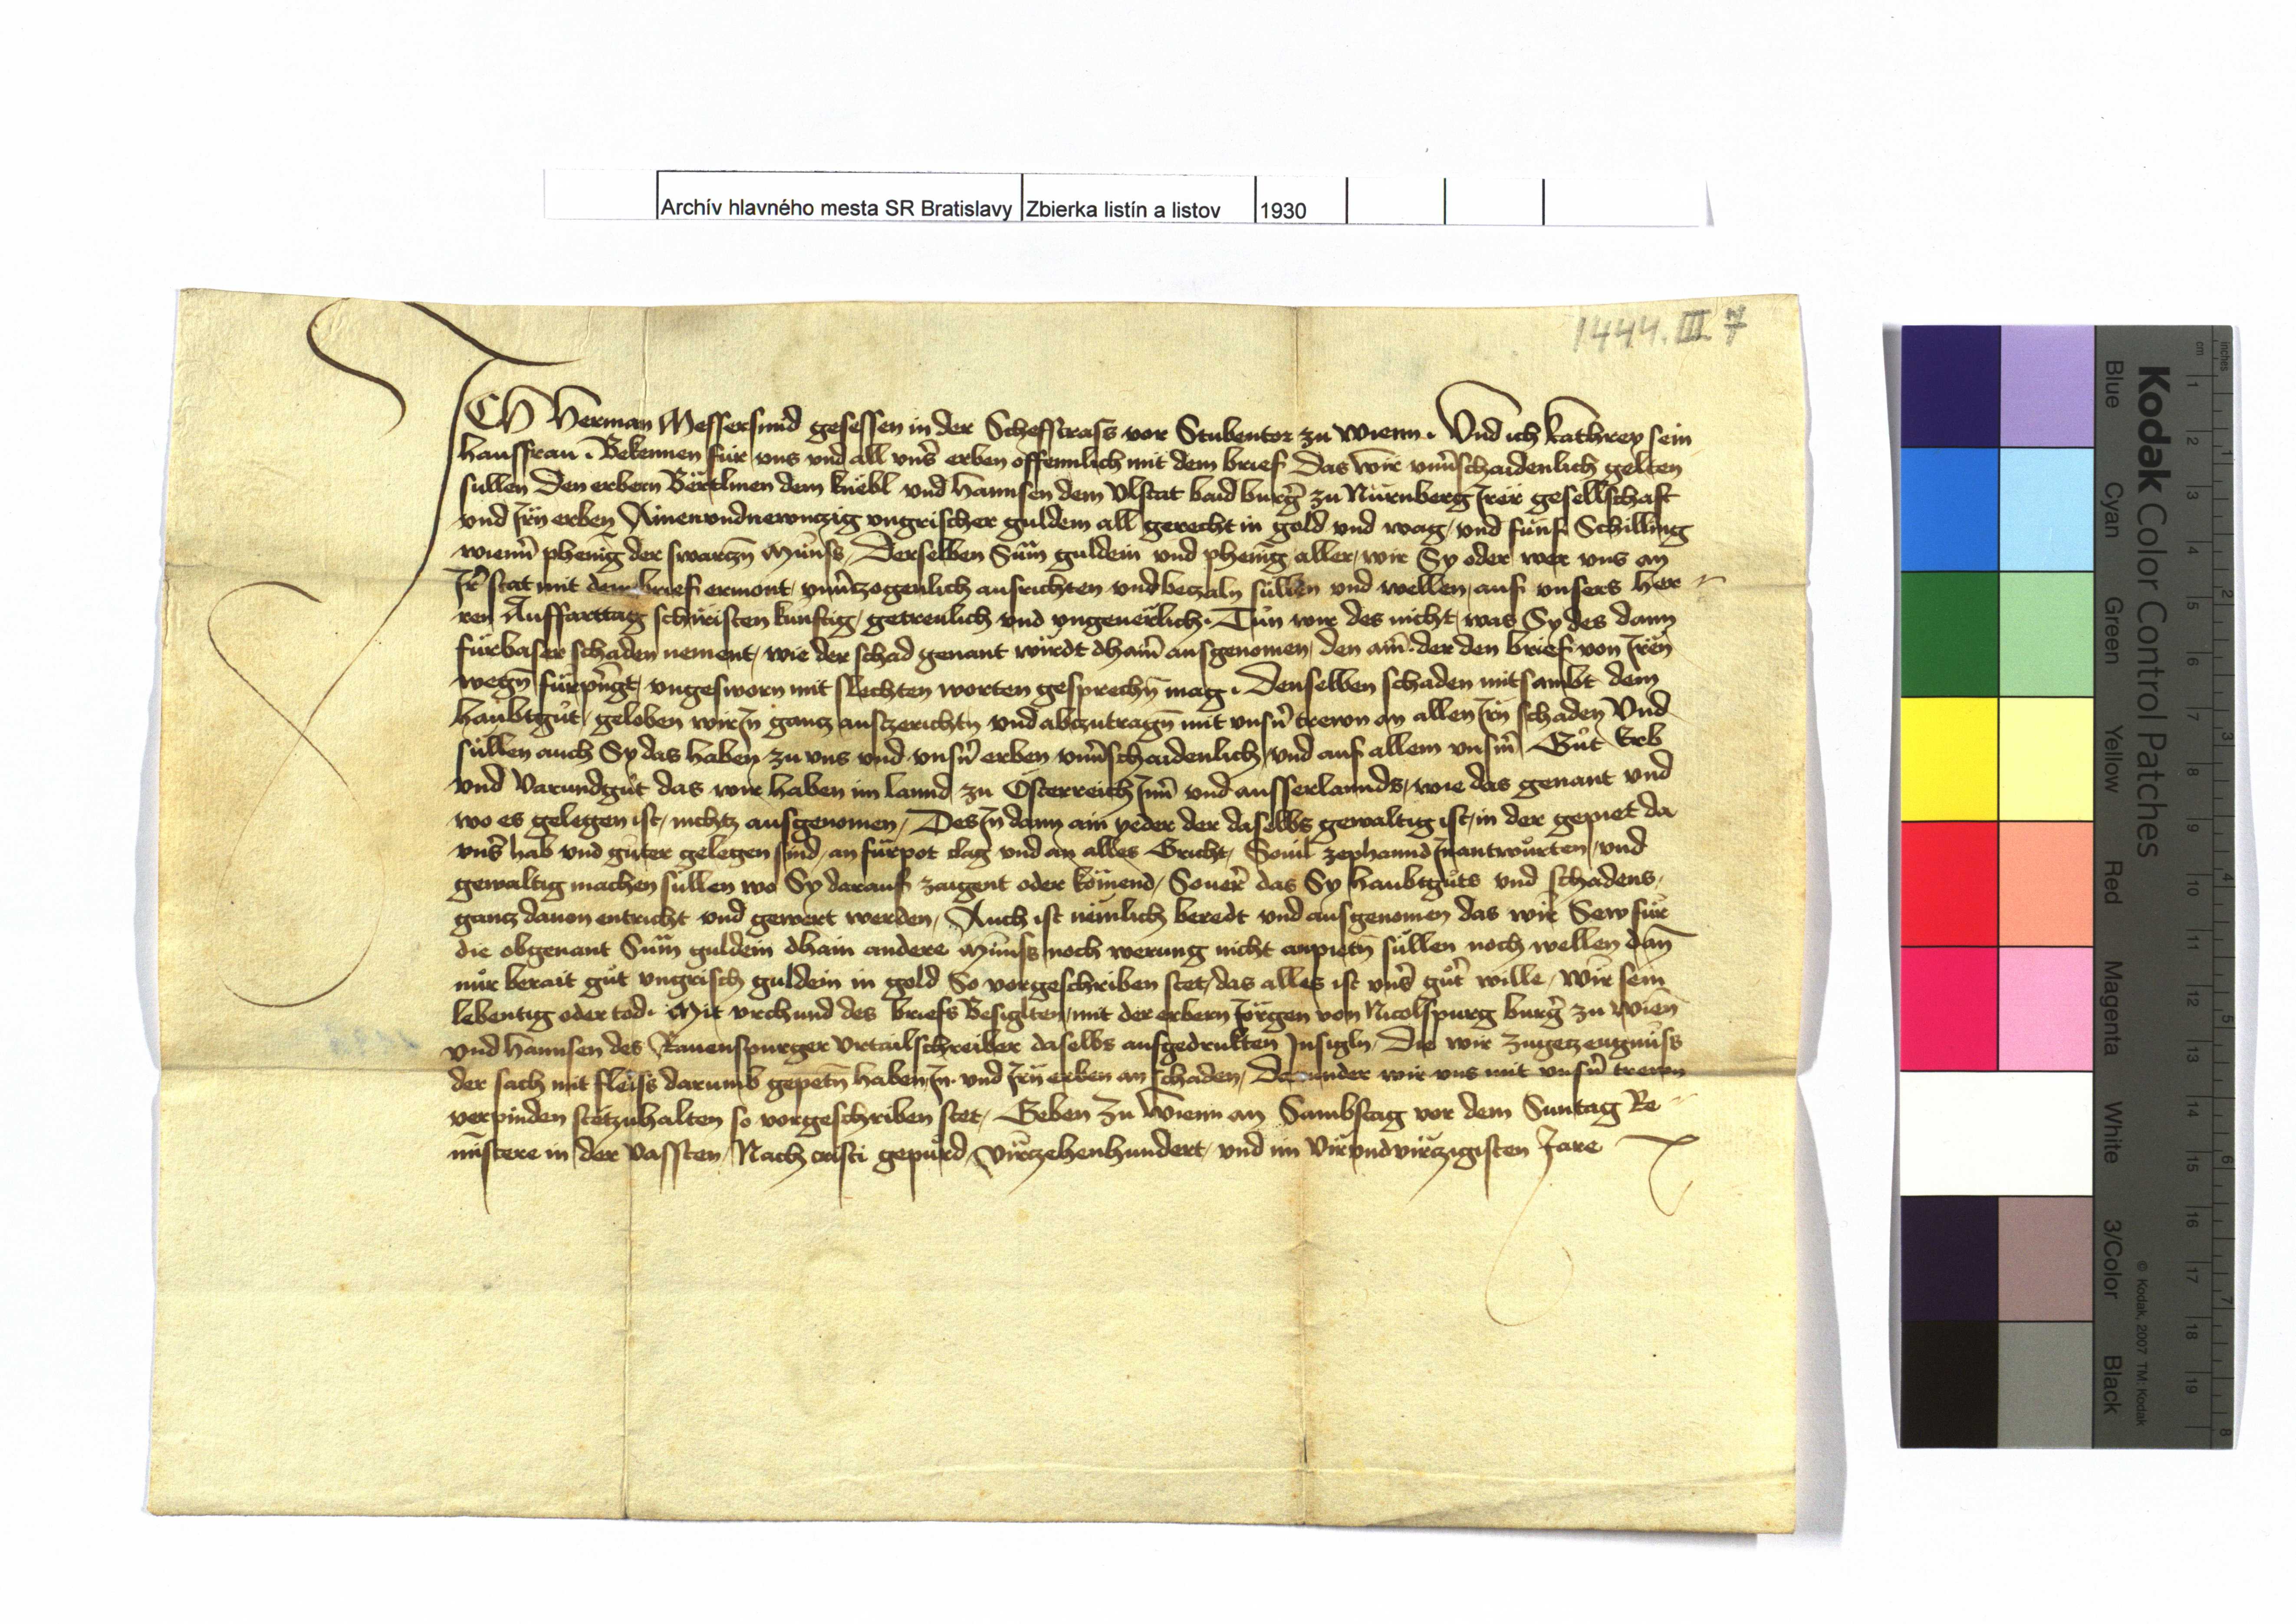 Archív hlavného mesta SR Bratislavy Zbierka listín a listov 1930
1444. III 7
ICH Herman Messersmid gesessen in der Scheffstrass vor Stubentor zu Wienn. Vnd ich kathrey sein
hausfraw. Bekennen für vns vnd all vnsr̄ erben offennlich mit dem brief Das wir vnuͦschaidenlich gelten
sullen Den erbern Bërtlmen dem knëbl vnd hannsen dem Vlstat baid burgr̄ zu Nürnberg Irer gesellschaft
vnd Irn̄ erben Ainenvndnewnczig vngrischer guldein all gerecht in gold vnd wag, vnd fünf Schilling
wienn̄ phenīg der swarczn̄ Münss, Derselben Sum̄ guldein vnd phenīg aller, wir Sy oder wer vns an
Ir̄ stat mit dem brief ermont, vnuͦczogenlich ausrichten vnd beczaln süllen vnd wellen, auf vnsers her
ren Auffarttag schiristen künftig, getreulich vnd vngeuerlich. Tün wir des nicht, was Sy des dann
fürbaser schaden nement, wie der schad genant würdt dhain̄ ausgenomen, den ain̄ der den brief von Iren̄
wegn̄ fürpringt, vngesworn mit slechten worten gesprechn̄ mag. Denselben schaden mitsambt dem
haubtgůt, geloben wir In̄ gancz ausczerichtn vnd abczutragn̄ mit vnsn̄ trewn an allen Irn̄ schaden Vnd
süllen auch Sy das haben zu vns vnd vnsn̄ erben vnuͦschaidenlich, vnd auf allem vnsm̄ Gůt Erb
vnd Varundgůt das wir haben im lannd zu Österreich Inn̄ vnd ausserlannds, wie das genant vnd
wo es gelegen ist, nichtz ausgenomen, Des In̄ dann ain yeder der daselbs gewaltig ist, in der gepiet da
vnsr̄ hab vnd güter gelegen sind, an fürpot clag vnd an alles Gricht, Souil zephannd In antwürten, vnd
gewaltig machen süllen wo Sy darauf zaigent oder komend, Souer̄ das Sy haubtgůts vnd schadens,
gancz dauon entricht vnd gewert werden, Auch ist nemlich beredt vnd ausgenomen das wir Sew für
die obgenant Sum̄ guldein dhain andere Münss noch werung nicht anpietn̄ süllen noch wellen dan̄
nür berait gůt vngrisch guldein in gold So vorgeschriben stet, das alles ist vnsr̄ gůtr̄ wille, wir sein
lebentig oder tod. Mit vrchund des briefs Besiglten, mit der erbern Jörgen von Nicolspurg burgr̄ zu Wien̄
vnd hannsen des Rauenspurger Vrtailschreiber daselbs aufgedrukten Insigln, Die wir zugeczeugnüss
der sach mit fleiss darumb gepetn̄ haben, In. vnd Irn̄ erben an schaden, Darunder wir vns mit vnsn̄ trewn
verpinden stetzuhalten so vorgeschriben stet, Geben zu Wienn an Sambstag vor dem Suntag Re
mīstere in der Vassten, Nach cristi gepürd, Virczehenhundert, vnd im Virvndvirczigisten Jare
Kodak Color Control Patches
Blue Cyan Green Yellow Red Magenta White 3/Color Black
© Kodak, 2007 TM: Kodak
inches 1 2 3 4 5 6 7 8
cm 1 2 3 4 5 6 7 8 9 10 11 12 13 14 15 16 17 18 19